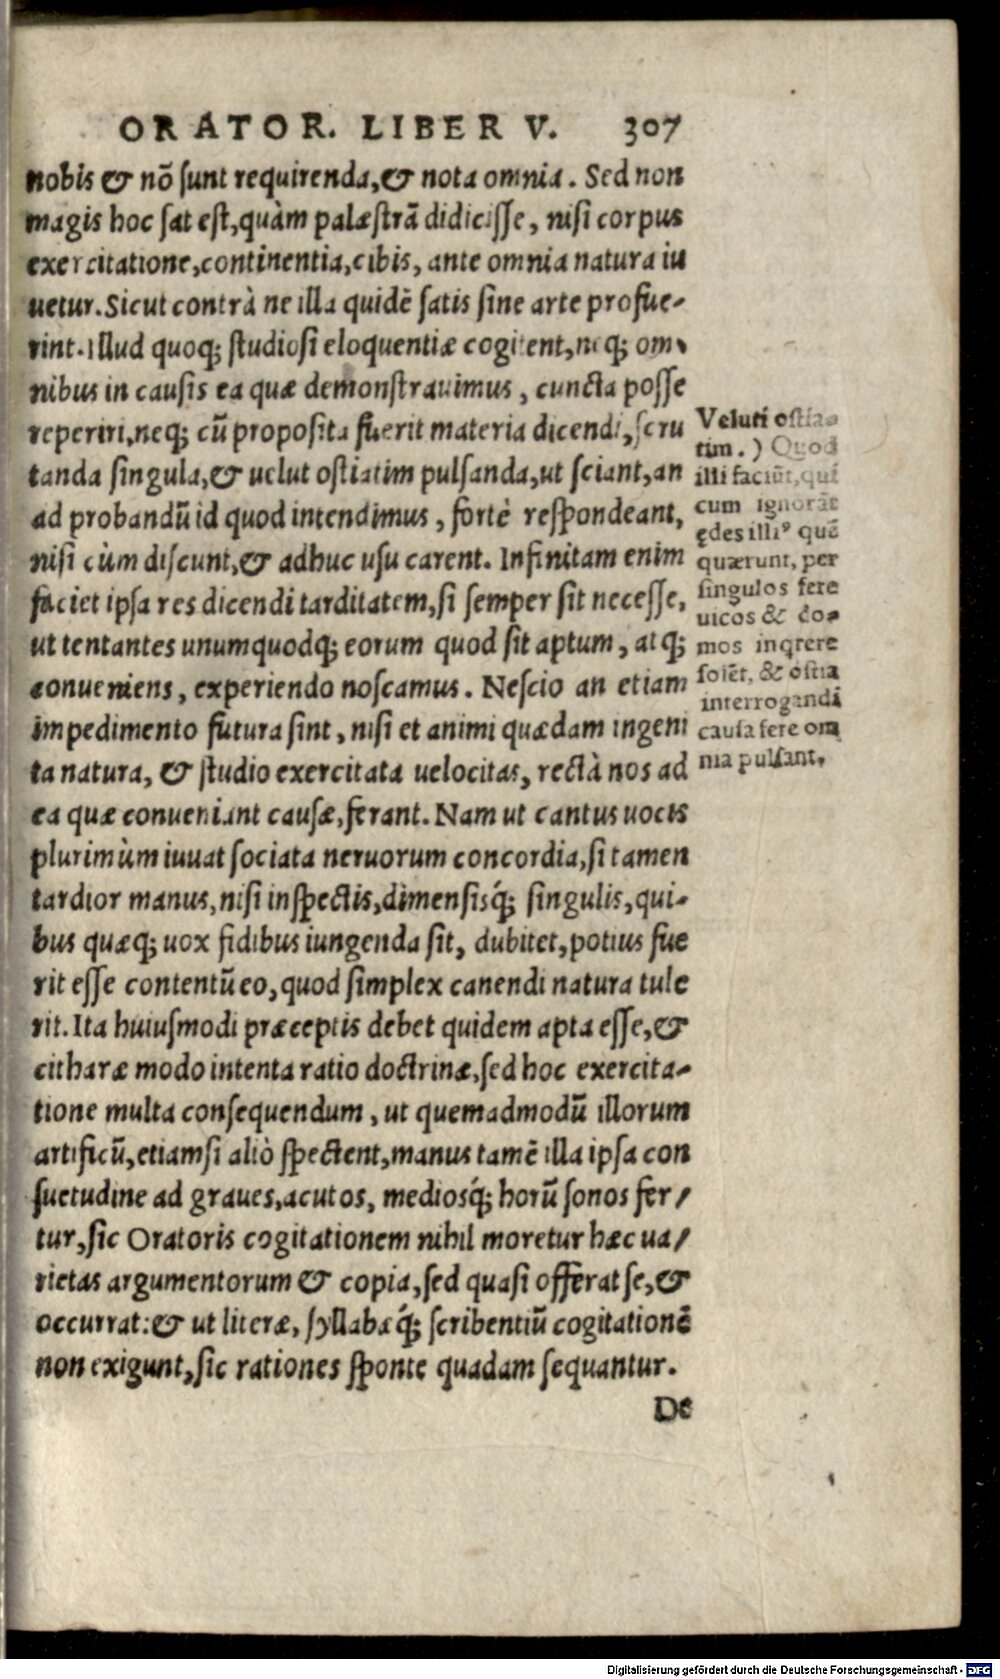 ORATOR. LIBER V. 307
nobis & nõ sunt requirenda,& nota omnia. Sed non
magis hoc sat est,quàm palæstrã didicisse, nisi corpus
exercitatione,continentia,cibis, ante omnia natura iu
uetur. Sicut contrà ne illa quidẽ satis sine arte profue-
rint. Illud quoq; studiosi eloquentiæ cogitent,neq; om-
nibus in causis ea quæ demonstrauimus, cuncta posse
reperiri,neq; cũ proposita fuerit materia dicendi,scru
tanda singula,& uelut ostiatim pulsanda,ut sciant,an
ad probandũ id quod intendimus, fortè respondeant,
nisi cùm discunt,& adhuc usu carent. Infinitam enim
faciet ipsa res dicendi tarditatem,si semper sit necesse,
ut tentantes unumquodq; eorum quod sit aptum, atq;
conueniens, experiendo noscamus. Nescio an etiam
impedimento futura sint, nisi et animi quædam ingeni
ta natura, & studio exercitata uelocitas, rectà nos ad
ea quæ conueniant causæ,ferant. Nam ut cantus uocis
plurimùm iuuat sociata neruorum concordia,si tamen
tardior manus,nisi inspectis,dimensisq́; singulis,qui-
bus quæq; uox fidibus iungenda sit, dubitet,potius fue
rit esse contentũ eo,quod simplex canendi natura tule
rit. Ita huiusmodi præceptis debet quidem apta esse,&
citharæ modo intenta ratio doctrinæ,sed hoc exercita-
tione multa consequendum, ut quemadmodũ illorum
artificũ,etiamsi aliò spectent,manus tamẽ illa ipsa con
suetudine ad graues,acutos, mediosq́; horũ sonos fer-
tur,sic Oratoris cogitationem nihil moretur hæc ua-
rietas argumentorum & copia,sed quasi offerat se,&
occurrat:& ut literæ, syllabæq́; scribentiũ cogitationẽ
non exigunt,sic rationes sponte quadam sequantur.
De
Veluti ostia-
tim.) Quod
illi faciũt,qui
cum ignorãt
ędes illiꝰ quẽ
quærunt, per
singulos fere
uicos & do-
mos inqrere
solẽt, & ostia
interrogandi
causa fere om
nia pulsant.
Digitalisierung gefördert durch die Deutsche Forschungsgemeinschaft - DFG